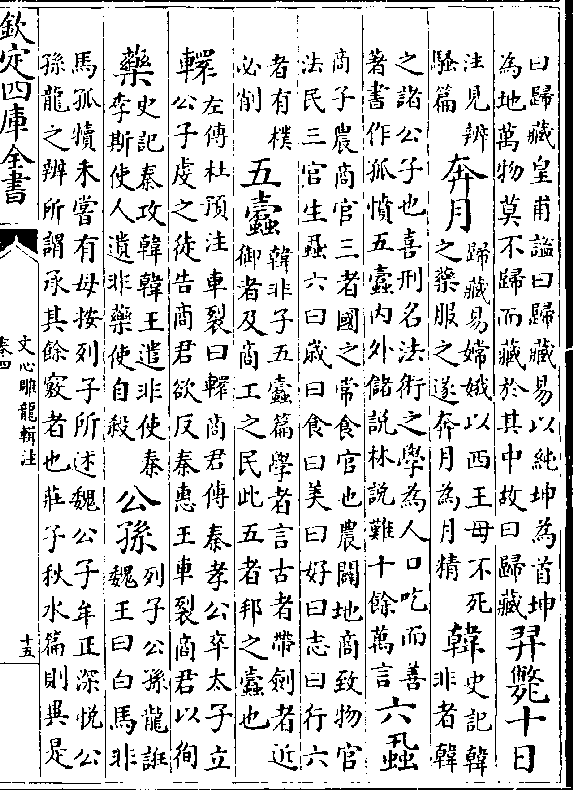 曰歸藏皇甫謐曰歸藏易以純坤為首坤
為地萬物莫不歸而藏於其中故曰歸藏
羿斃十日
注見辨
騷篇
奔月
歸藏易嫦娥以西王母不死
之藥服之遂奔月為月精
韓
史記韓
非者韓
之諸公子也喜刑名法術之學為人口吃而善
著書作孤憤五蠹內外儲說林說難十餘萬言
六蝨
商子農商官三者國之常食官也農闢地商致物官
法民三官生蝨六曰歲曰食曰美曰好曰志曰行六
者有樸
必削
五蠹
韓非子五蠹篇學者言古者帶劍者近
御者及商工之民此五者邦之蠹也
轘
左傳杜預注車裂曰轘商君傳秦孝公卒太子立
公子虔之徒告商君欲反秦惠王車裂商君以徇
藥
史記秦攻韓韓王遣非使秦
李斯使人遺非藥使自殺
公孫
列子公孫龍誑
魏王曰白馬非
馬孤犢未嘗有母按列子所述魏公子牟正深悅公
孫龍之辨所謂承其餘竅者也莊子秋水篇則異是
欽定四庫全書
文心雕龍輯注
卷四
十五